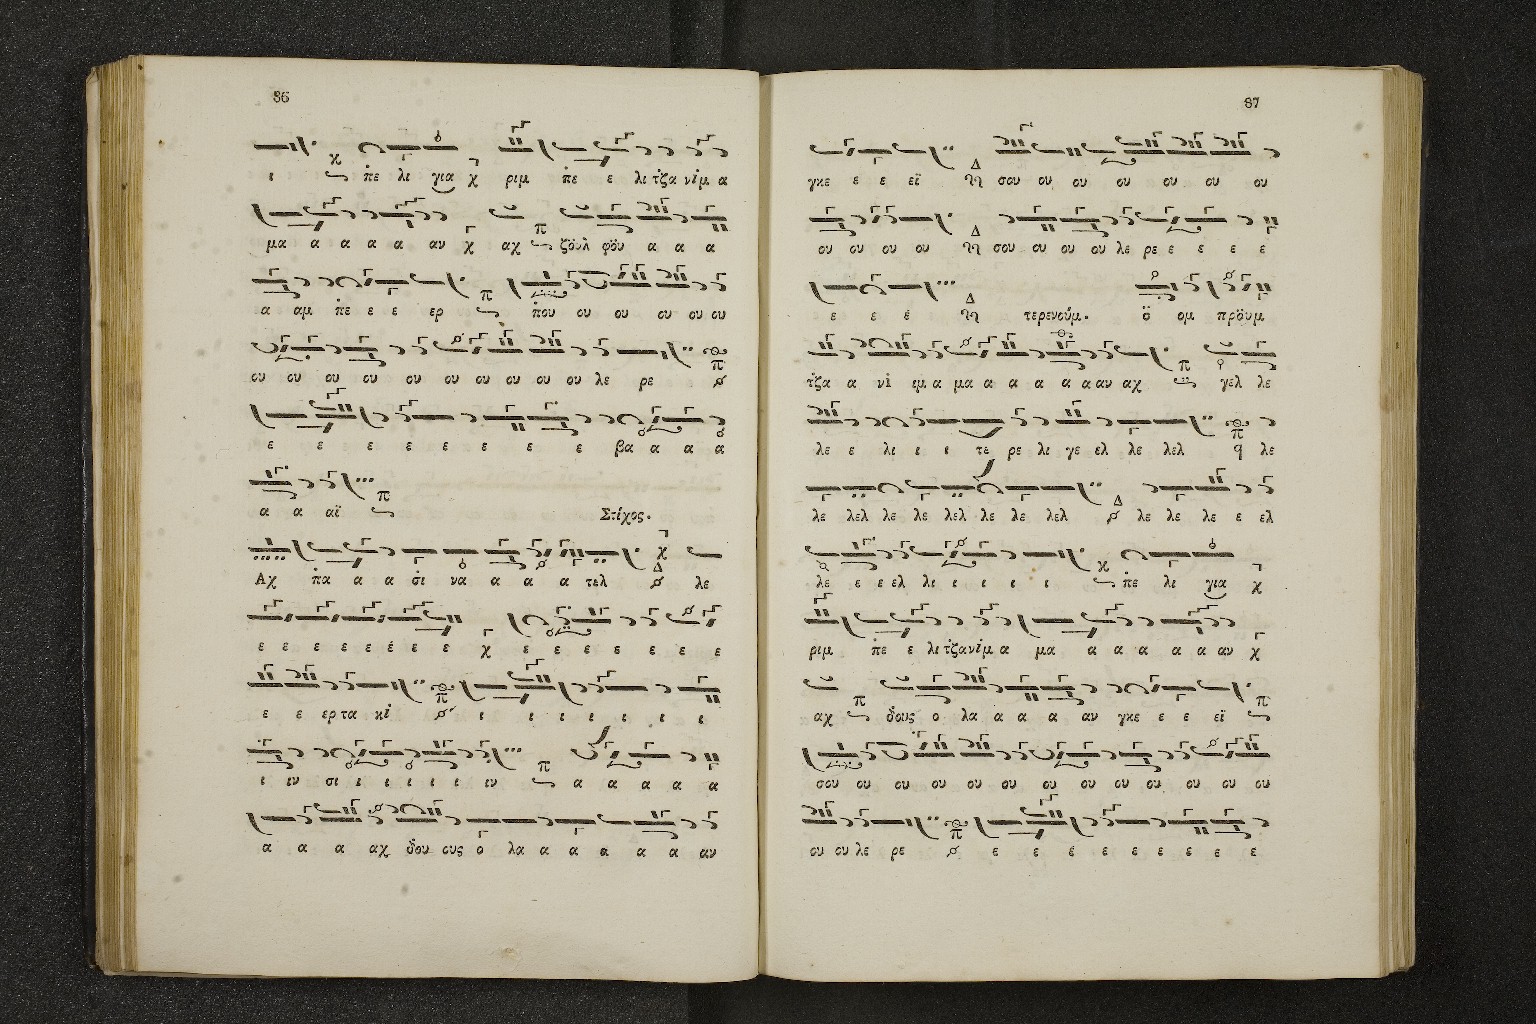 86
ι πε λι για χ ριμ πε ε λι τζα νὶμ α
μα α α α α α αν χ αχ ζοὺλ φοὺ α α α
α αμ πε ε ε ερ που ου ου ου ου ου
ου ου ου ου ου ου ου ου ου ου λε ρε
ε ε ε ε ε ε ε ε βα α α α
α α αϊ Στίχος.
Αχ πα α α σὶ να α α α α τελ λε
ε ε ε ε ε έ ε ε χ ε ε ε ε ε ε ε
ε ε ερ τα κὶ ι ι ι ι ι ι ι
ι ιν σι ι ι ι ι ι ι ιν α α α α α
α α α αχ δου ους ο λα α α α α α αν
87
γκε ε ε εϊ σου ου ου ου ου ου ου
ου ου ου ου σου ου ου ου λε ρε ε ε ε ε
ε ε έ τερενούμ. ὅ ομ πρὅυμ
τζα α νὶ ιμ α μα α α α α α αν αχ γελ λε
λε ε λι ι ι τε ρε λι γε ελ λε λελ λε
λε λελ λε λε λελ λε λε λελ λε λε λε ε ελ
λε ε ε ελ λι ι ι ι ι πε λι για χ
ριμ πε ε λι τζανὶμ α μα α α α α α αν χ
αχ δους ο λα α α α αν γκε ε ε εϊ
σου ου ου ου ου ου ου ου ου ου ου ου ου
ου ου λε ρε ε ε έ ε ε ε ε ε ε